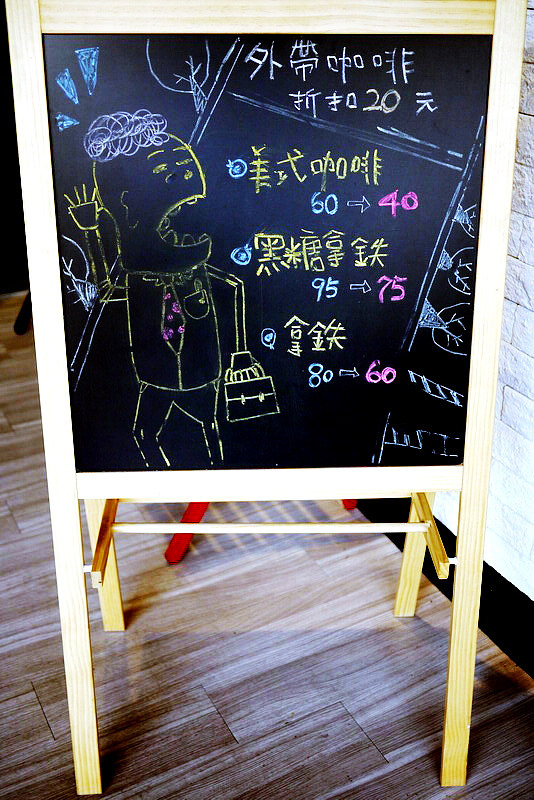 外帶咖啡
折扣20元
美式咖啡
60⇨40
黑糖拿鉄
95⇨75
拿鉄
80⇨60